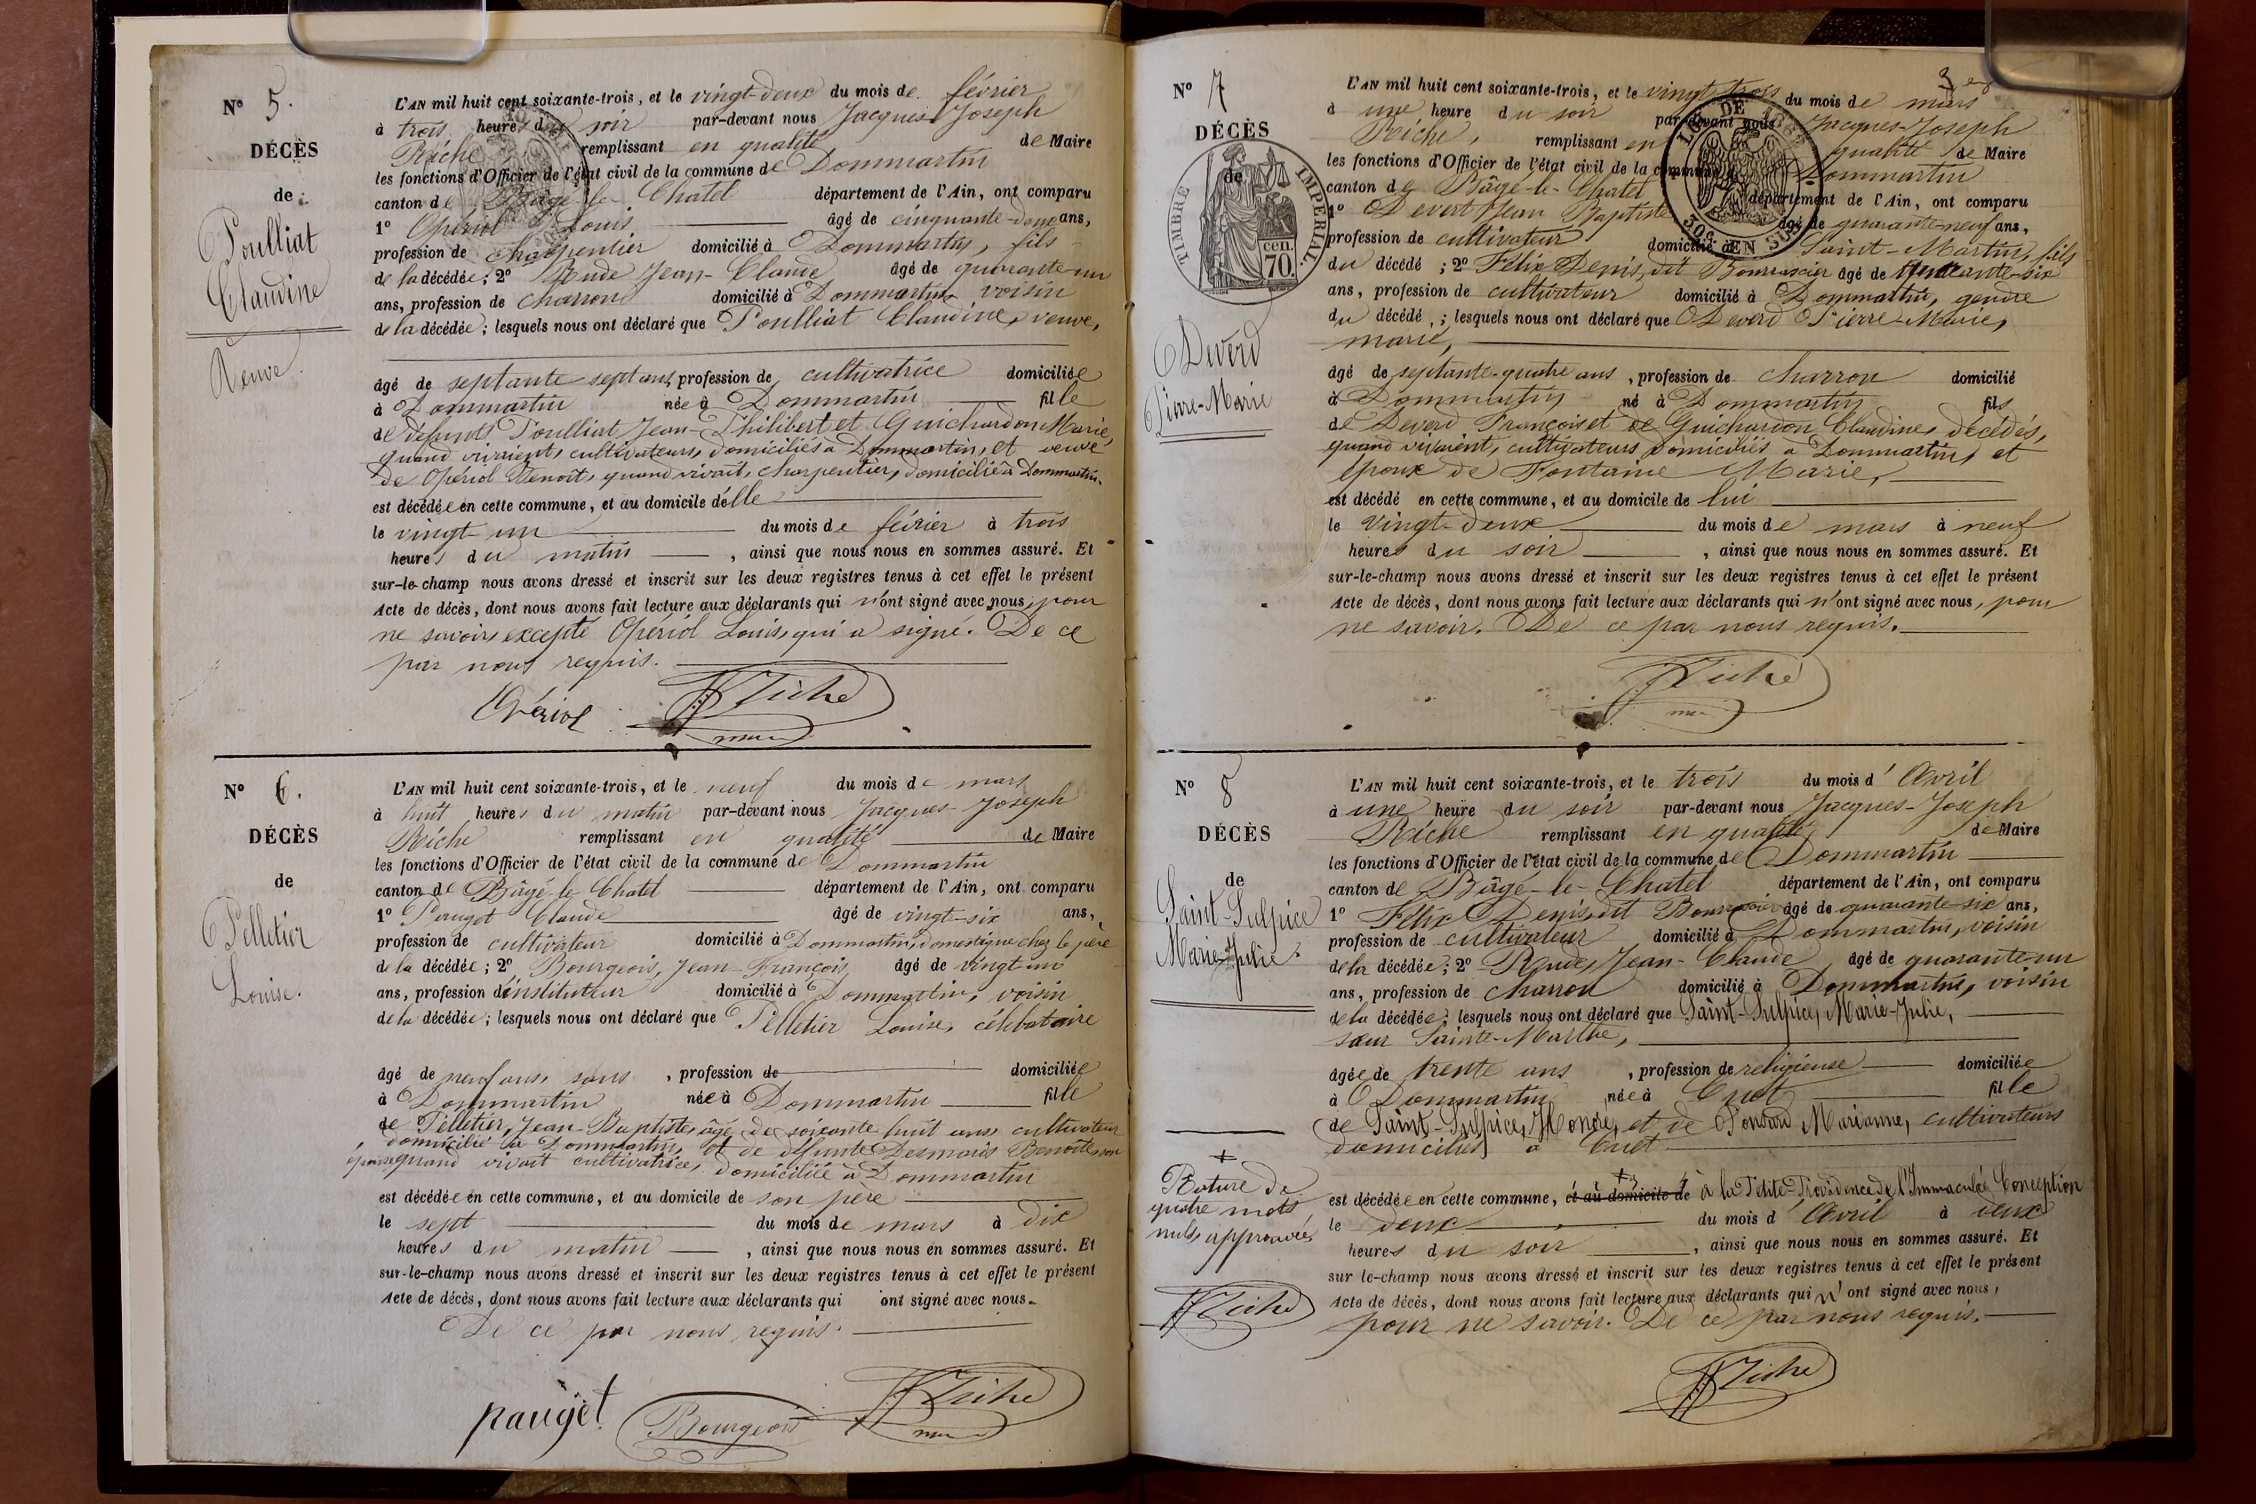 N° 5.
DÉCÈS
de
Poulliat
Claudine
Veuve.
L'AN mil huit cent soixante-trois, et le vingt-deux du mois de février
à trois heures du soir par-devant nous Jacques-Joseph
Riche remplissant en qualité de Maire
les fonctions d'Officier de l'état civil de la commune de Dommartin
canton de Bâgé-le-Chatel département de l'Ain, ont comparu
1° Opériol Louis âgé de cinquante-deux ans,
profession de charpentier domicilié à Dommartin, fils
de la décédée; 2° Rude Jean-Claude âgé de quarante-un
ans, profession de charron domicilié à Dommartin, voisin
de la décédée; lesquels nous ont déclaré que Poulliat Claudine, veuve,
âgé de septante-sept ans, profession de cultivatrice domiciliée
à Dommartin née à Dommartin fille
de défunts Poulliat Jean-Philibert et Guichardon Marie,
quand vivaient, cultivateurs, domiciliés à Dommartin, et veuve
de Opériol Benoît, quand vivait, charpentier, domicilié à Dommartin.
est décédée en cette commune, et au domicile d'elle
le vingt-un du mois de février à trois
heures du matin, ainsi que nous nous en sommes assuré. Et
sur-le-champ nous avons dressé et inscrit sur les deux registres tenus à cet effet le présent
Acte de décès, dont nous avons fait lecture aux déclarants qui n'ont signé avec nous, pour
ne savoir, excepté Opériol Louis, qui a signé. De ce
par nous requis.
Opériol Riche
N° 6.
DÉCÈS
de
Pelletier
Louise.
L'AN mil huit cent soixante-trois, et le neuf du mois de mars
à huit heures du matin par-devant nous Jacques-Joseph
Riche remplissant en qualité de Maire
les fonctions d'Officier de l'état civil de la commune de Dommartin
canton de Bâgé-le-Chatel département de l'Ain, ont comparu
1° Pauget Claude âgé de vingt-six ans,
profession de cultivateur domicilié à Dommartin, domestique chez le père
de la décédée; 2° Bourgeois, Jean-François âgé de vingt-un
ans, profession d'instituteur domicilié à Dommartin, voisin
de la décédée; lesquels nous ont déclaré que Pelletier Louise, célibataire
âgé de neuf ans, sans, profession de domiciliée
à Dommartin née à Dommartin fille
de Pelletier, Jean-Baptiste, âgé de soixante-huit ans, cultivateur
domicilié à Dommartin, et de défunte Desmaris Benoîte, son
épouse quand vivait cultivatrice, domiciliée à Dommartin
est décédée en cette commune, et au domicile de son père
le sept du mois de mars à dix
heures du matin, ainsi que nous nous en sommes assuré. Et
sur-le-champ nous avons dressé et inscrit sur les deux registres tenus à cet effet le présent
Acte de décès, dont nous avons fait lecture aux déclarants qui ont signé avec nous.
De ce par nous requis.
pauget Bourgeois Riche
N° 7
DÉCÈS
de
TIMBRE IMPÉRIAL.
cen.
70.
Deverd
Pierre-Marie
L'AN mil huit cent soixante-trois, et le vingt-trois du mois de mars
à une heure du soir par-devant nous Jacques-Joseph
Riche, remplissant en qualité de Maire
les fonctions d'Officier de l'état civil de la commune de Dommartin
canton de Bâgé-le-Chatel département de l'Ain, ont comparu
1° Devert Jean Baptiste âgé de quarante-neuf ans,
profession de cultivateur domicilié à Saint-Martin, fils
du décédé; 2° Félix Denis, dit âgé de quarante-six
ans, profession de cultivateur domicilié à Dommartin, gendre
du décédé,; lesquels nous ont déclaré que Deverd Pierre-Marie,
marié,
âgé de septante-quatre ans, profession de charron domicilié
à Dommartin né à Dommartin fils
de Deverd François et de Guichardon Claudine, décédés,
quand vivaient, cultivateurs domiciliés à Dommartin, et
époux de Fontaine Marie,
est décédé en cette commune, et au domicile de lui
le vingt-deux du mois de mars à neuf
heures du soir, ainsi que nous nous en sommes assuré. Et
sur-le-champ nous avons dressé et inscrit sur les deux registres tenus à cet effet le présent
Acte de décès, dont nous avons fait lecture aux déclarants qui n'ont signé avec nous, pour
ne savoir. De ce par nous requis.
Riche
N° 8
DÉCÈS
de
Saint-Sulpice
Marie-Julie.
L'AN mil huit cent soixante-trois, et le trois du mois d'Avril
à une heure du soir par-devant nous Jacques-Joseph
Riche remplissant en qualité de Maire
les fonctions d'Officier de l'état civil de la commune de Dommartin
canton de Bâgé-le-Chatel département de l'Ain, ont comparu
1° Félix Denis, dit âgé de quarante-six ans,
profession de cultivateur domicilié à Dommartin, voisin
de la décédée; 2° Rude, Jean-Claude âgé de quarante-un
ans, profession de charron domicilié à Dommartin, voisin
de la décédée; lesquels nous ont déclaré que Saint-Sulpice, Marie-Julie,
sœur Sainte-Marthe,
âgée de trente ans, profession de religieuse domiciliée
à Dommartin née à Cuet fille
de Saint-Sulpice, Honoré, et de Ponsard Marianne, cultivateurs
domiciliés à Cuet
est décédée en cette commune, et au domicile de à la Petite-Providence de l'Immaculée Conception
le deux du mois d'Avril à deux
heures du soir, ainsi que nous nous en sommes assuré. Et
sur le-champ nous avons dressé et inscrit sur les deux registres tenus à cet effet le présent
Acte de décès, dont nous avons fait lecture aux déclarants qui n'ont signé avec nous,
pour ne savoir. De ce par nous requis.
Rature de
quatre mots
nuls, approuvée,
Riche
Riche